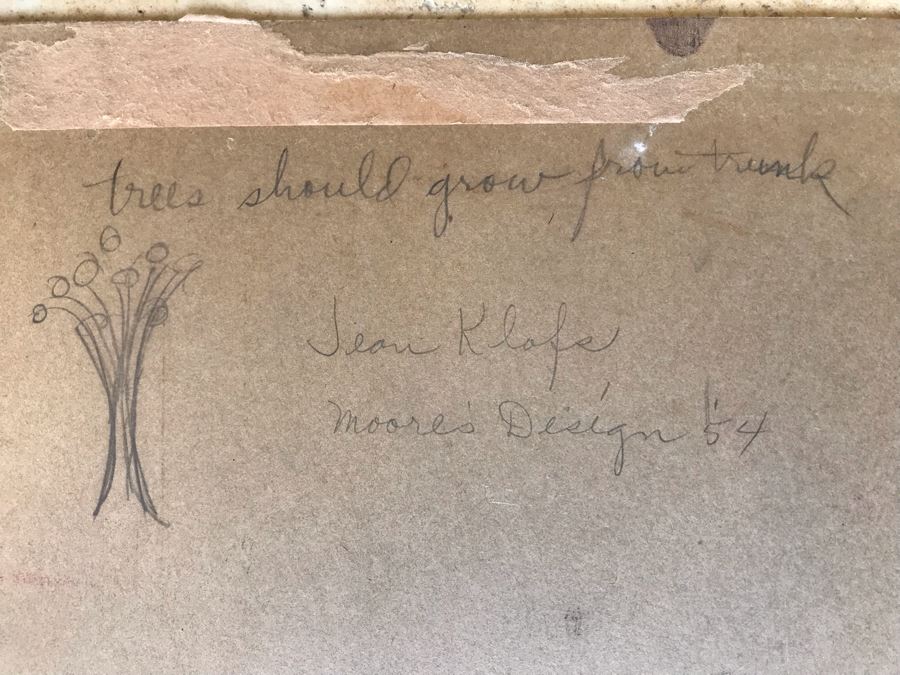 trees should grow from trunk
Jean Klafs
Moore's Design '54